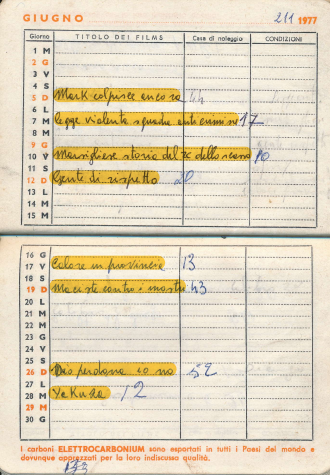 GIUGNO 211 1977
Giorno TITOLO DEI FILMS Casa di noleggio CONDIZIONI
1 M
2 G
3 V
4 S
5 D Mark colpisce ancora 44
6 L
7 M legge violenta squadra anticrimine 17
8 M
9 G
10 V Marsigliese storia del 10
11 S
12 D Gente di rispetto 20
13 L
14 M
15 M
16 G
17 V Calore in provincia 13
18 S
19 D Maciste contro i mostri 43
20 L
21 M
22 M
23 G
24 V
25 S
26 D Dio perdona io no 52
27 L
28 M Yakuza 12
29 M
30 G
I carboni ELETTROCARBONIUM sono esportati in tutti i Paesi del mondo e
dovunque apprezzati per la loro indiscussa qualità.